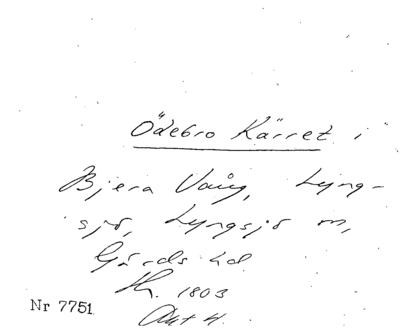 Ödebro Kärret i
Bjera Vång, Lyng-
sjö, Lyngsjö sn,
Gärds hd
Sk. 1803
Akt 4.
Nr 7751